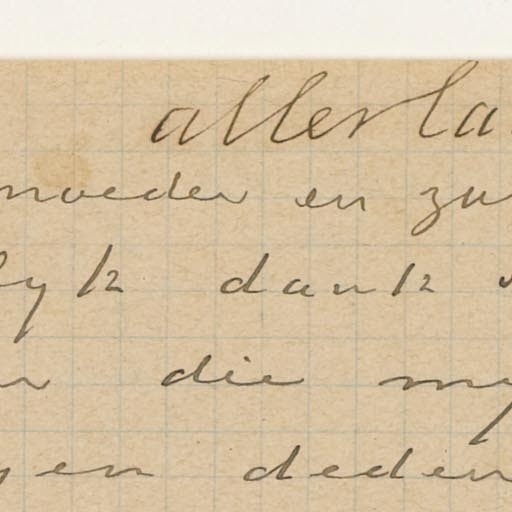 allerla
moeder en zu
lyk dank
die my
en deden